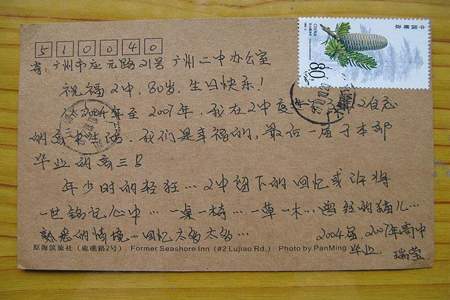 510040
寄:广州市应元路21号 广州二中办公室
祝福2中,80岁,生日快乐!
2004年至2007年,我在2中度
的高中生活,我们是幸福的,最后一届于本部
毕业的高三
年少时的轻狂…2中留下的回忆或许将
一世铭记心中…一桌一椅…一草一木…
熟悉的情境…回忆太多太多…
2004届,2007年高中
毕业 瑞莹
原海滨旅社(鹿礁路2号) Former Seashore Inn (#2 Lujiao Rd.) Photo by PanMing
中国邮政
CHINA
80分